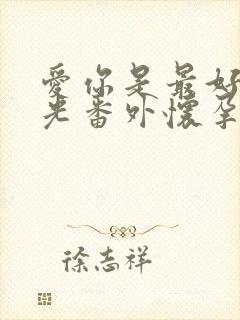 愛你是最好
光番外懷孕
徐志祥